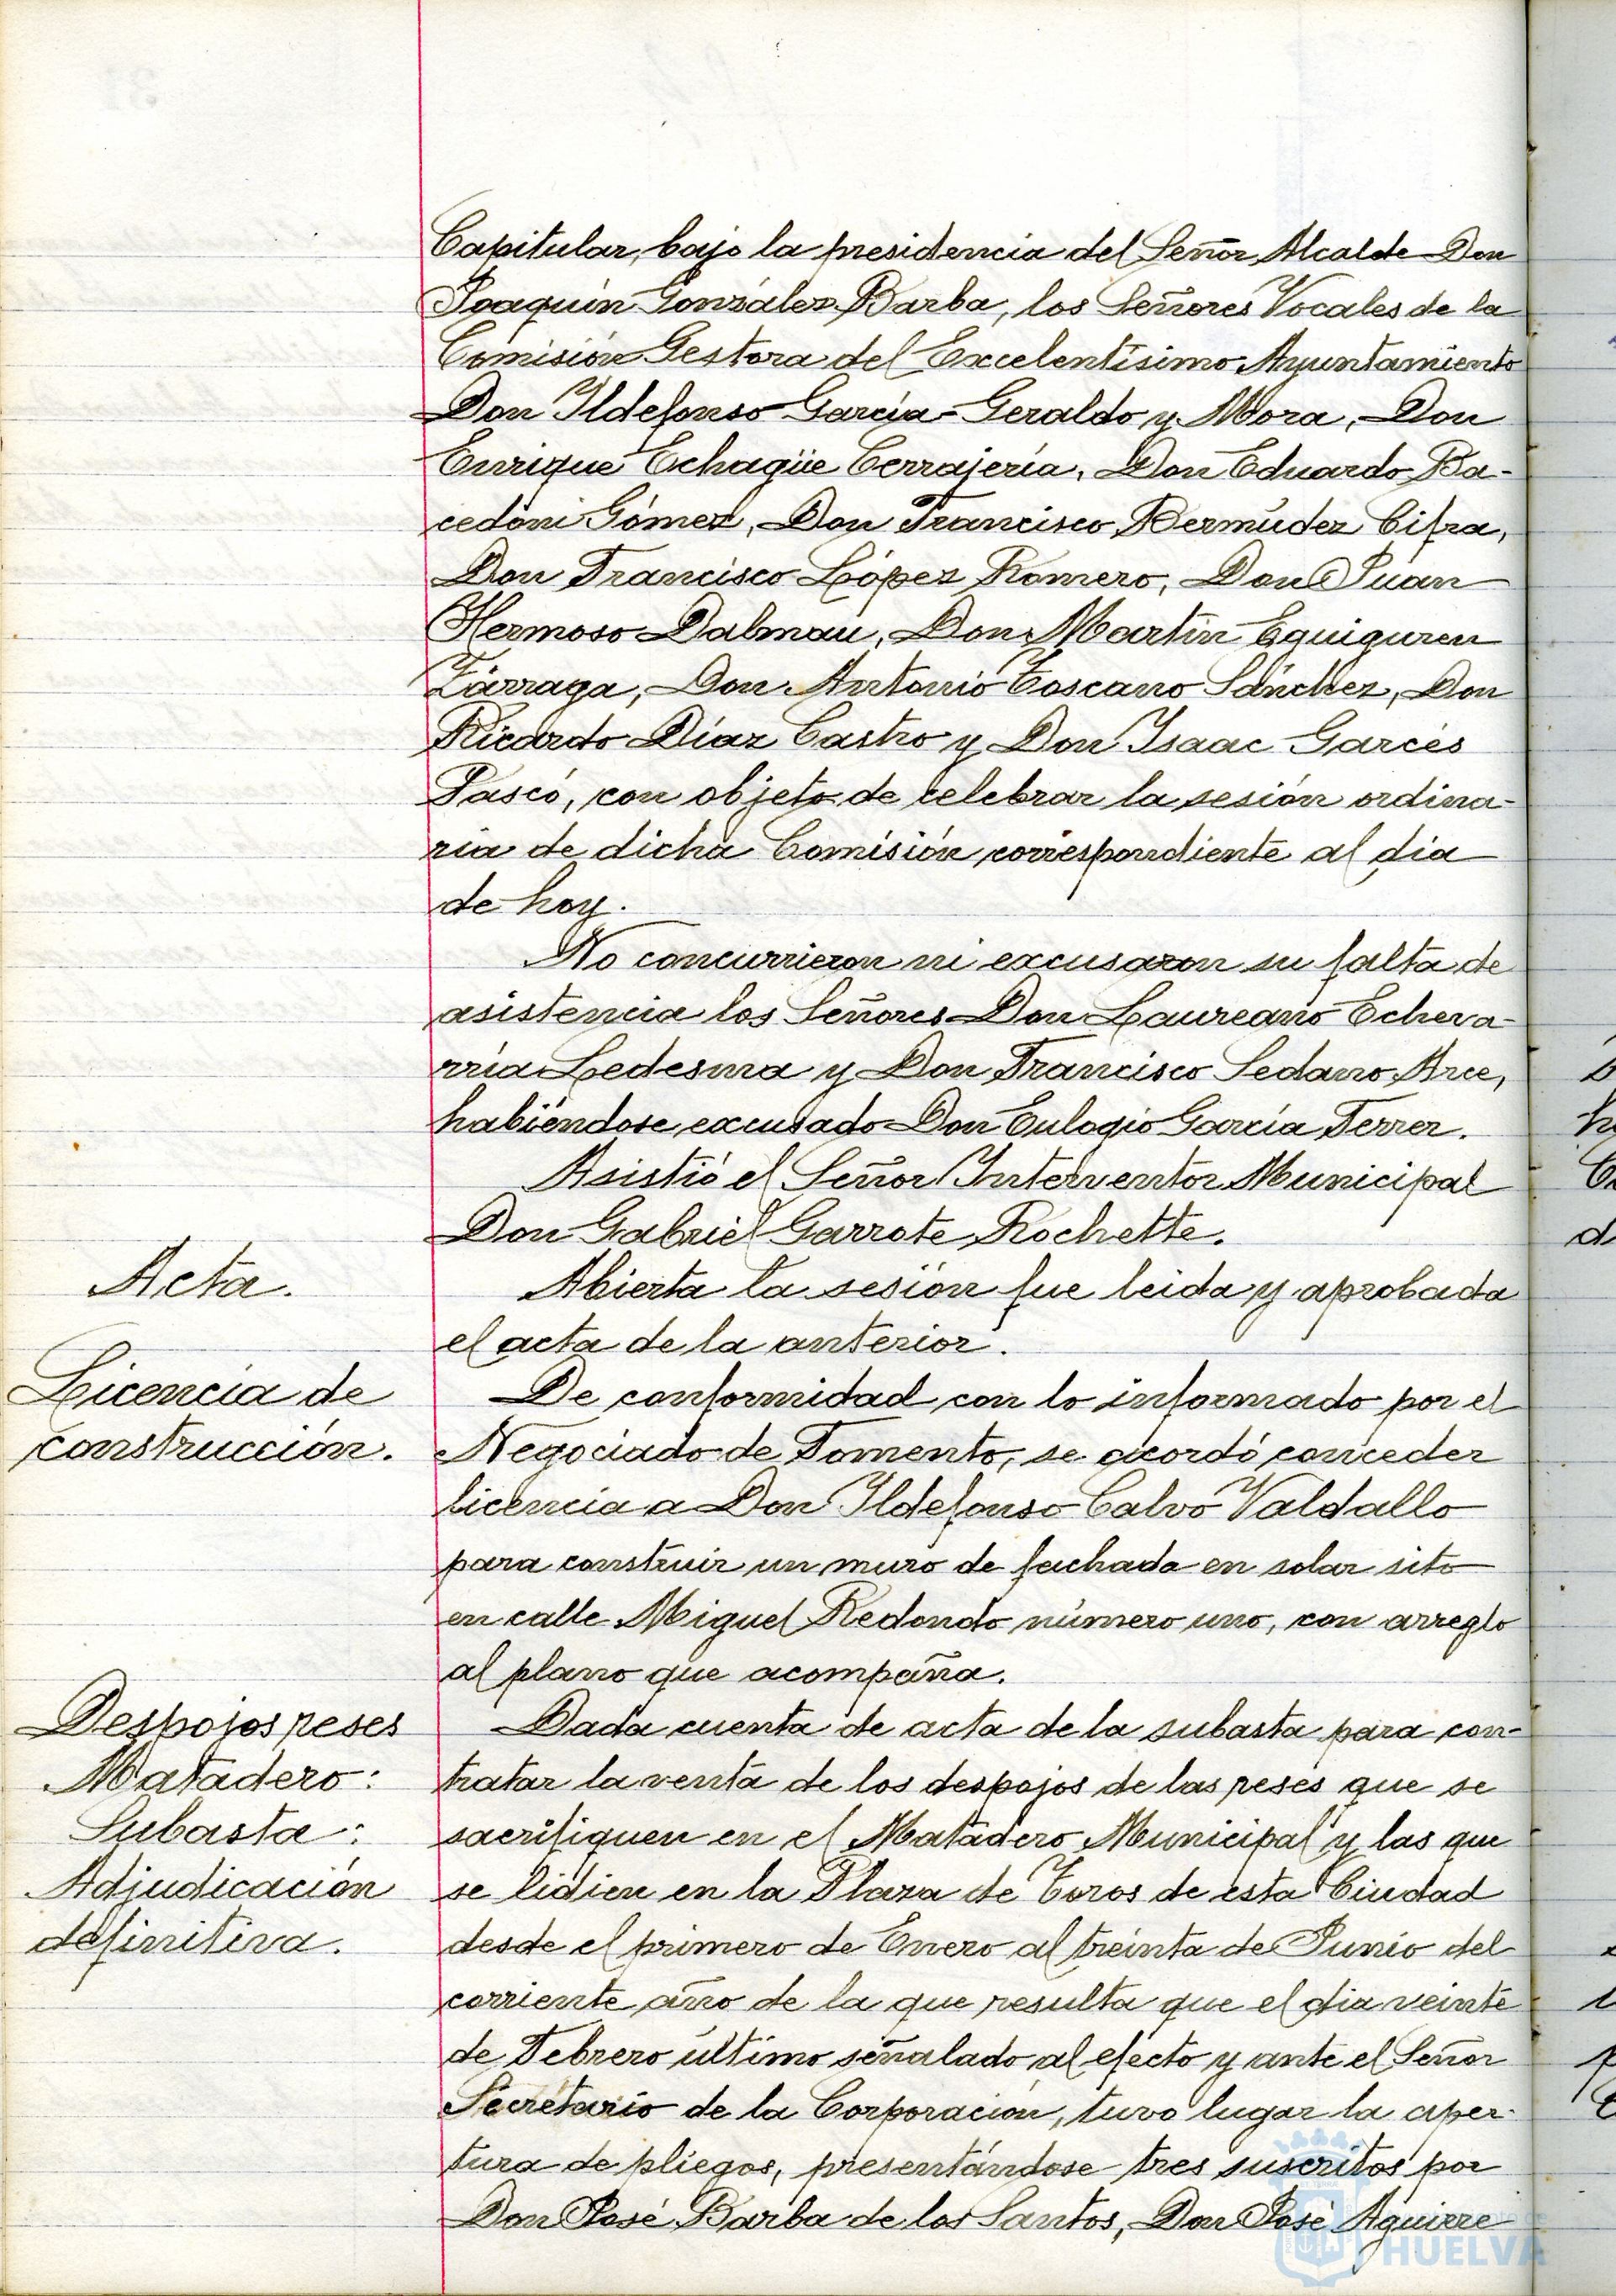 Capitular, bajo la presidencia del Señor Alcalde Don
Joaquín González Barba, los Señores Vocales de la
Comisión Gestora del Excelentísimo Ayuntamiento
Don Ildefonso García-Geraldo y Mora, Don
Enrique Echagüe Cerrajería, Don Eduardo Ba-
cedóni Gómez, Don Francisco Bermúdez Cifra,
Don Francisco López Romero, Don Juan
Hermoso Dalmau, Don Martín Eguiguren
Zárraga, Don Antonio Toscano Sánchez, Don
Ricardo Díaz Castro y Don Isaac Garcés
Pascó, con objeto de celebrar la sesión ordina-
ria de dicha Comisión correspondiente al dia
de hoy.
No concurrieron ni excusaron su falta de
asistencia los Señores Don Laureano Echeva-
rría Ledesma y Don Francisco Sedano Arce,
habiéndose excusado Don Eulogio García Ferrer.
Asistió el Señor Interventor Municipal
Don Gabriel Garrote Rochette.
Acta.
Abierta la sesión fue leida y aprobada
el acta de la anterior.
Licencia de
construcción.
De conformidad con lo informado por el
Negociado de Fomento, se acordó conceder
licencia a Don Ildefonso Calvo Valdallo
para construir un muro de fachada en solar sito
en calle Miguel Redondo número uno, con arreglo
al plano que acompaña.
Despojos reses
Matadero:
Subasta:
Adjudicación
definitiva.
Dada cuenta de acta de la subasta para con-
tratar la venta de los despojos de las reses que se
sacrifiquen en el Matadero Municipal y las que
se lidien en la Plaza de Toros de esta Ciudad
desde el primero de Enero al treinta de Junio del
corriente año de la que resulta que el dia veinte
de Febrero último señalado al efecto y ante el Señor
Secretario de la Corporación, tuvo lugar la aper-
tura de pliegos, presentándose tres suscritos por
Don José Barba de los Santos, Don José Aguirre
HUELVA